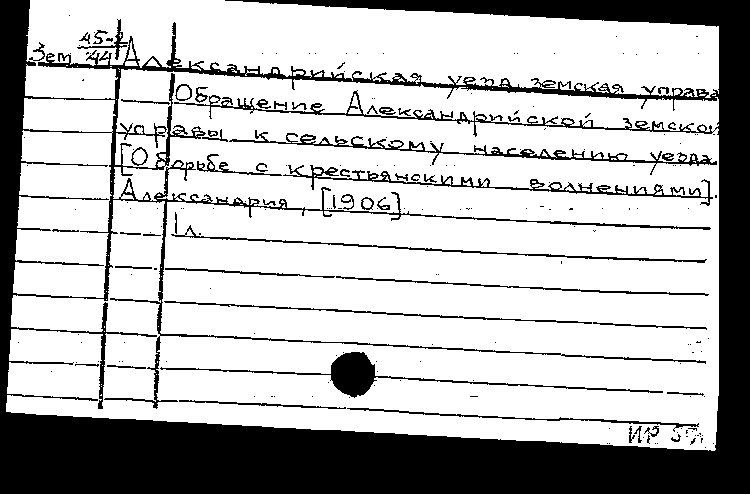 45-2
Зем 44 Александрийская уезд. земская управа
Обращение Александрийской земской
управы к сельскому населению уезда.
[О борьбе с крестьянскими волнениями].
Александрия, [1906].
1 л.
ИР